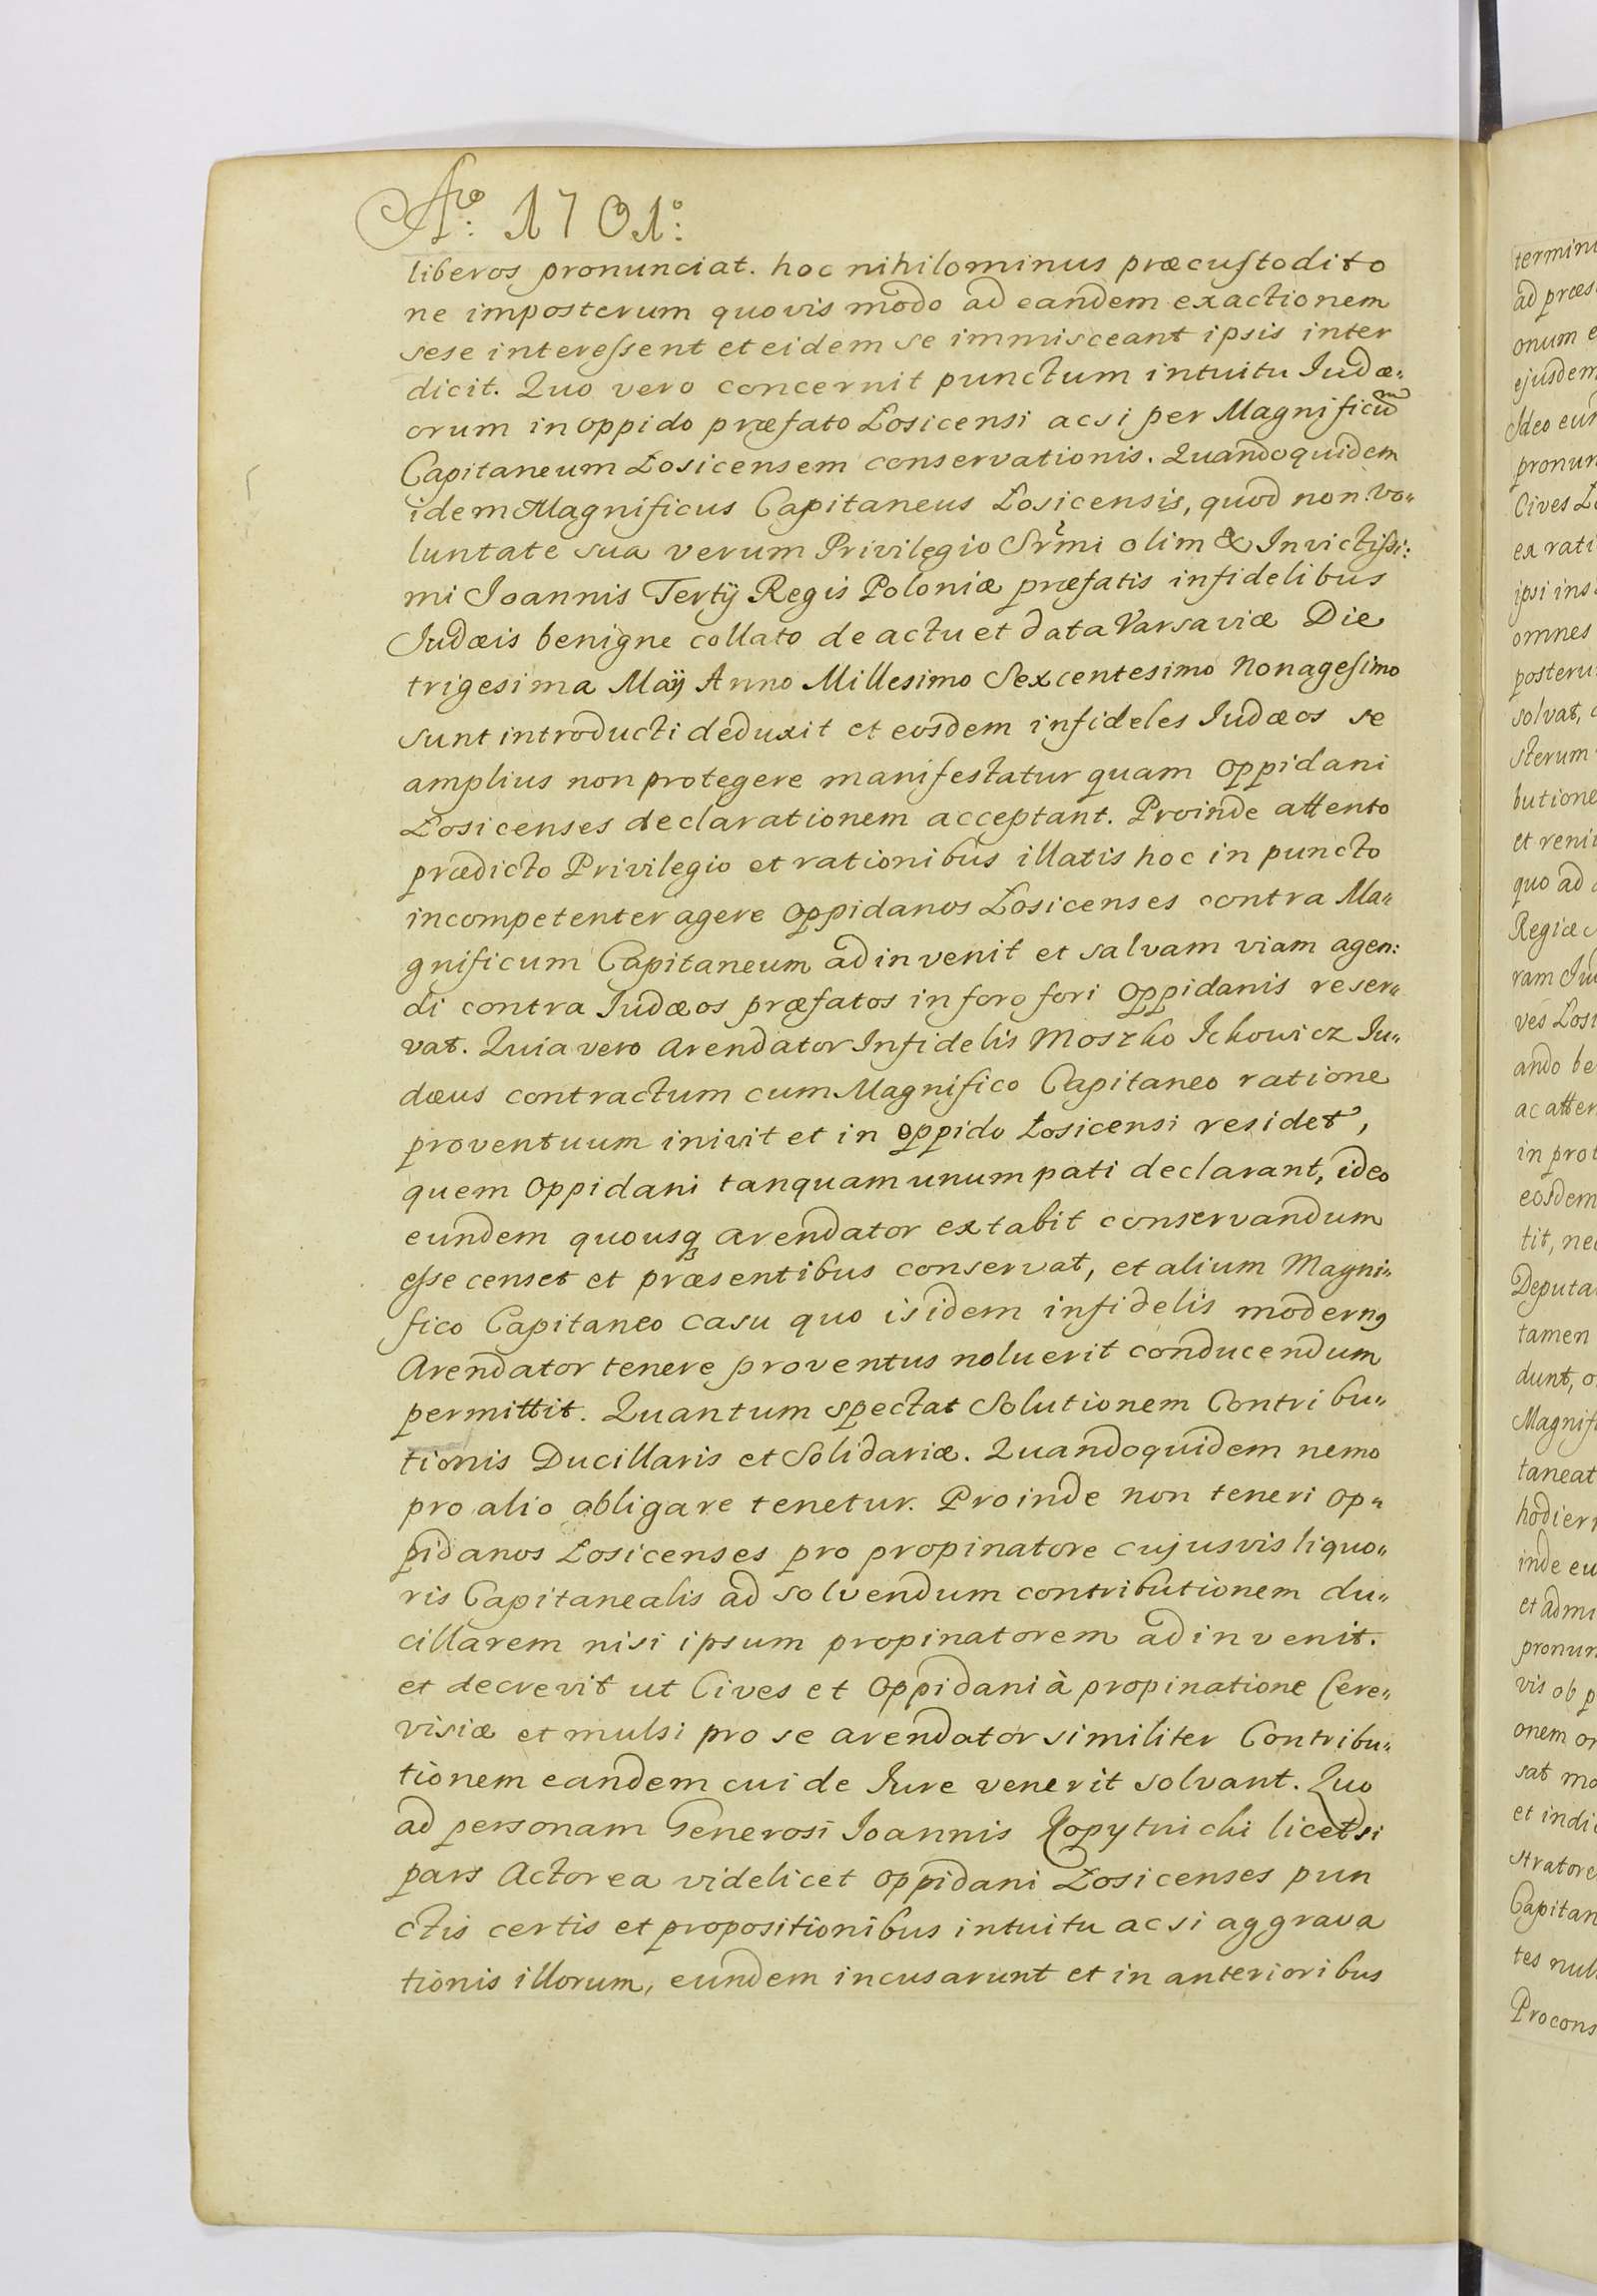 Aō: 1701º:
liberos pronunciat. hoc nihilominus præcustodito
ne imposterum quovis modo ad eandem exactionem
sese interessent et eidem se immisceant ipsis inter
dicit. Quo vero concernit punctum intuitu Iudæ„
orum in oppido præfato Łosicensi acsi per Magnificũm
Capitaneum Łosicensem conservationis. Quandoquidem
idem Magnificus Capitaneus Łosicensis, quod non vo„
luntate sua verum Privilegio Srmi olim & Invictissi:
mi Ioannis Tertÿ Regis Poloniæ præfatis infidelibus
Judæis benigne collato de actu et data Varsaviæ Die
trigesima Maÿ Anno Millesimo Sexcentesimo Nonagesimo
sunt introducti deduxit et eosdem infideles Iudæos se
amplius non protegere manifestatur quam Oppidani
Łosicenses declarationem acceptant. Proinde attento
prædicto Privilegio et rationibus illatis hoc in puncto
incompetenter agere Oppidanos Łosicenses contra Ma„
gnificum Capitaneum adinvenit et salvam viam agen:
di contra Iudæos præfatos in foro fori Oppidanis reser„
vat. Quia vero Arendator Infidelis Moszko Ickowicz Iu„
dæus contractum cum Magnifico Capitaneo ratione
proventuum inivit et in oppido Łosicensi residet,
quem Oppidani tanquam unum pati declarant, ideo
eundem quousq arendator extabit conservandum
esse censet et præsentibus conservat, et alium Magni„
fico Capitaneo casu quo isidem infidelis modern9
Arendator tenere proventus noluerit conducendum
permittit. Quantum spectat Solutionem Contribu„
tionis Ducillaris et Solidariæ. Quandoquidem nemo
pro alio obligare tenetur. Proinde non teneri Op„
pidanos Łosicenses pro propinatore cujusvis liquo„
ris Capitanealis ad solvendum contributionem du„
cillarem nisi ipsum propinatorem adinvenit.
et decrevit ut Cives et Oppidani à propinatione Cere„
visiæ et mulsi pro se arendator similiter Contribu„
tionem eandem cui de Iure venerit solvant. Quo
ad personam Generosi Ioannis Kopytnicki licet si
pars Actorea videlicet Oppidani Łosicenses pun
ctis certis et propositionibus intuitu acsi aggrava
tionis illorum, eundem incusarunt et in anterioribus